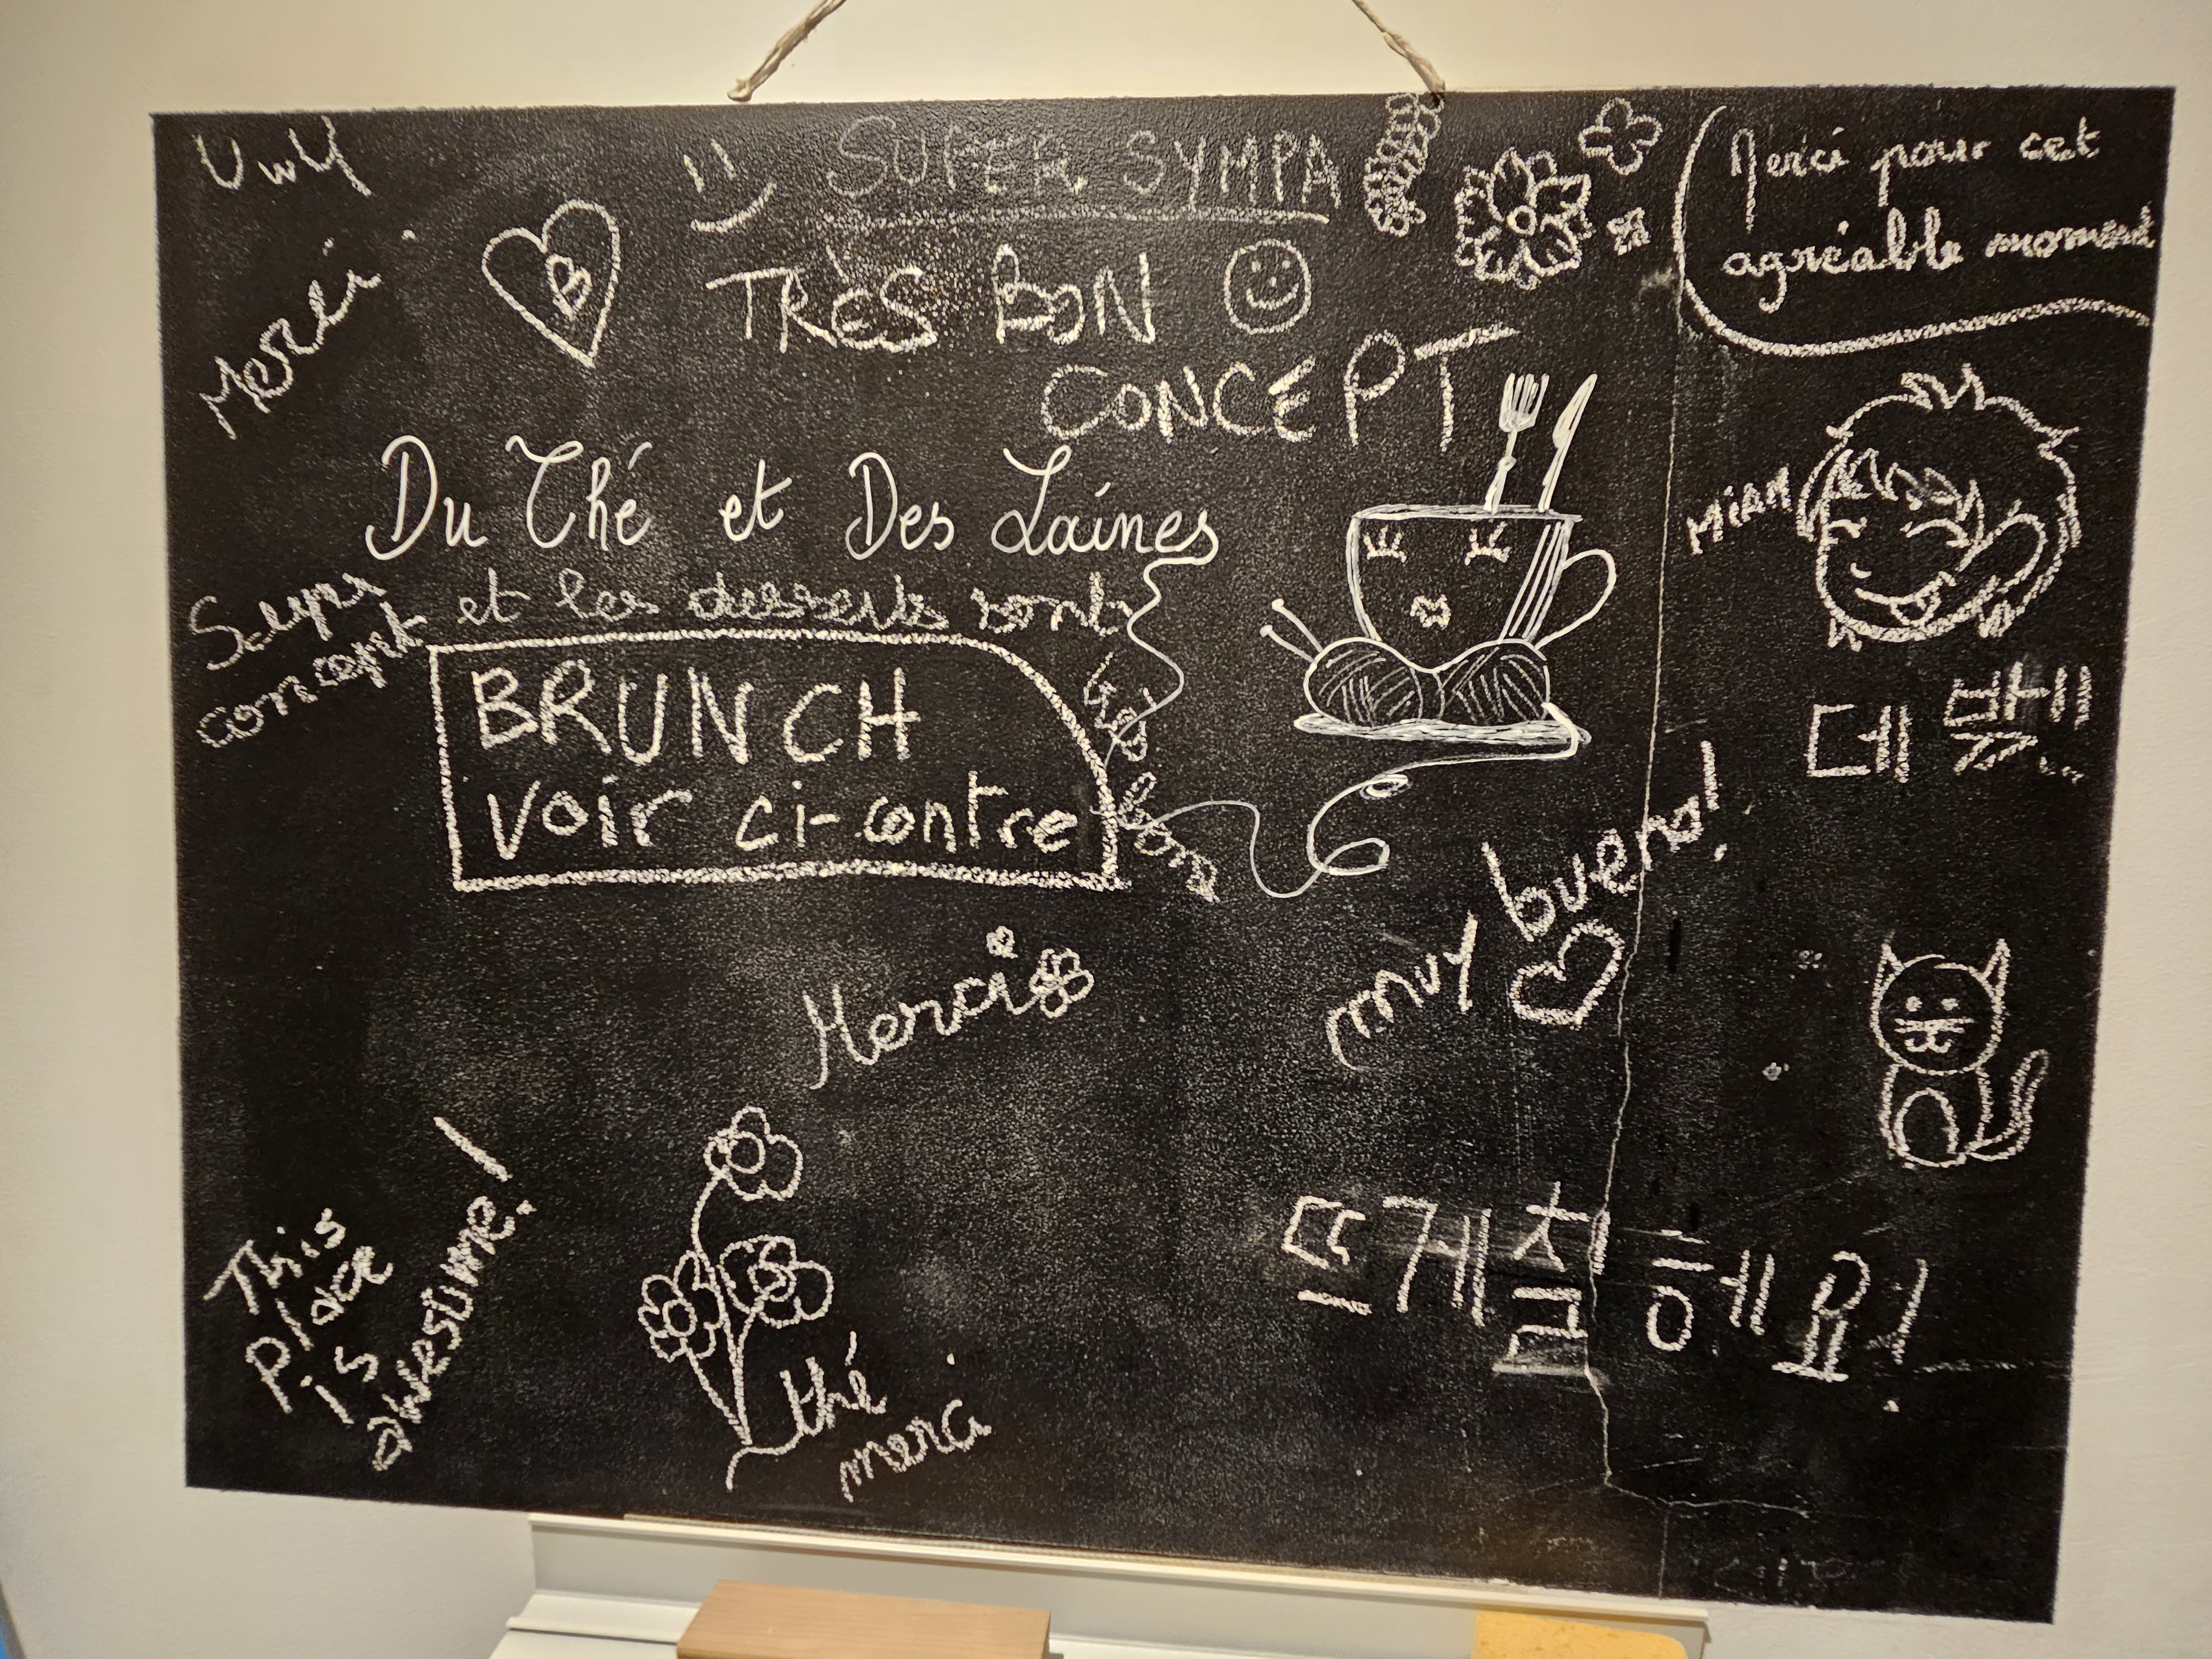 UwU
SUPER SYMPA
Merci pour cet
agréable moment
Merci
B
TRÈS BON
CONCEPT
Du Thé et Des Laines
MIAM
Super
concept et les desserts sont
très bons
BRUNCH
voir ci-contre
muy bueno!
Merci
This
place
is
awesome!
thé
merci